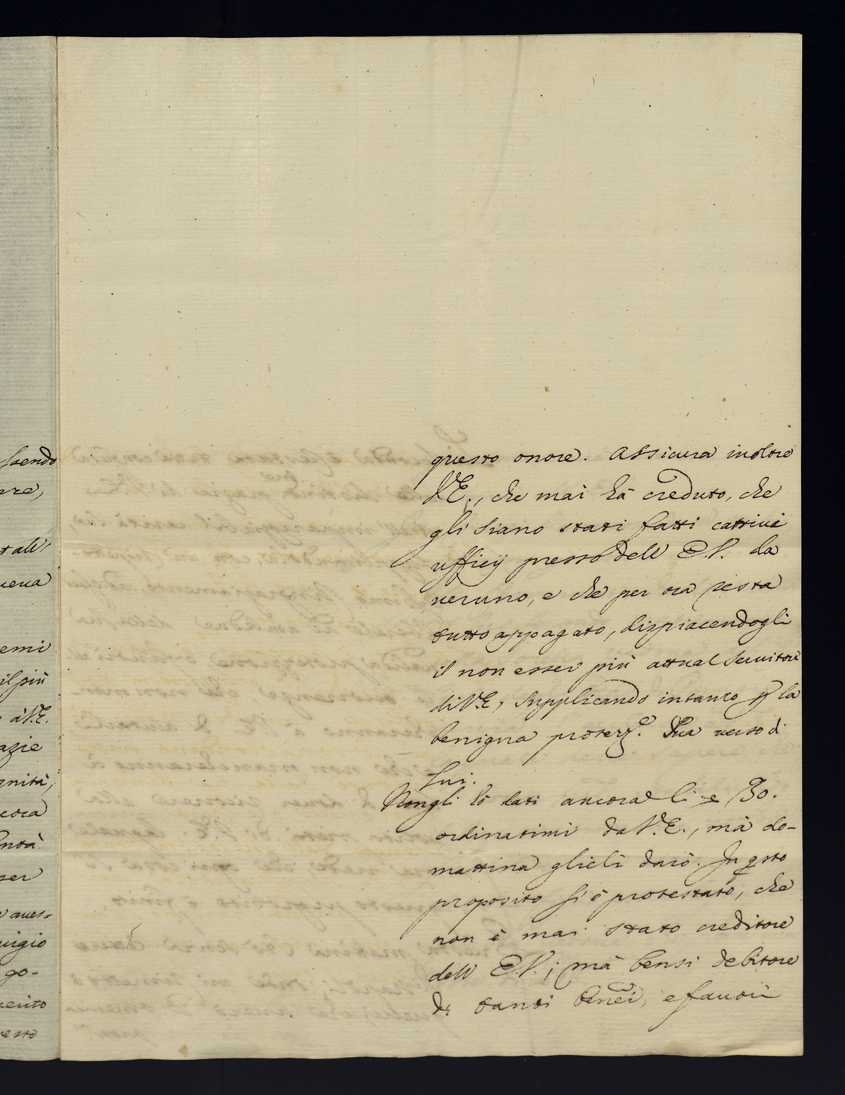 questo onore. Assicura inoltre
V.E., che mai hà creduto, che
gli siano stati fatti cattivi
ufficij presso dell' E.V. da
veruno, e che per ora resta
tutto appagato, dispiacendogli
il non esser più attual Servitore
di V.E., supplicando intanto p la
benigna protez.e Sua verso di
Lui.
Non gli hò dati ancora li 30.
ordinatimi da V.E., mà do-
mattina glieli darò. In qsto
proposito si è protestato, che
non è mai stato creditore
dell' E.V.; mà bensì debitore
di tanti benefici, e favori
ssendo
il più
à V.E.
azie
gnità,